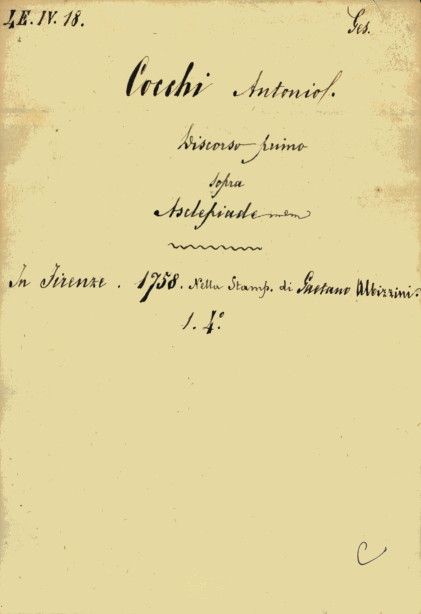 LE. IV. 18.
Ges.
Cocchi Antonio.
Discorso primo
sopra
Asclepiade
In Firenze. 1758. Nella Stamp. di Gaetano Albizzini.
1. 4.°
C